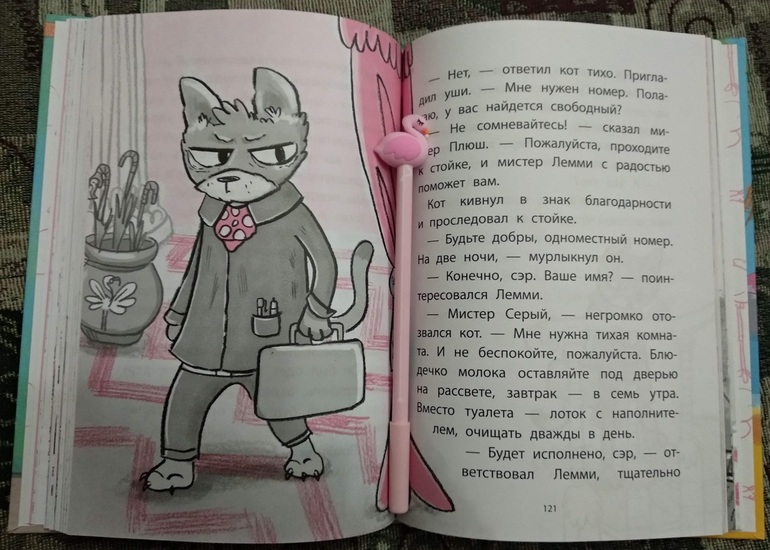 — Нет, — ответил кот тихо. Пригла-
дил уши. — Мне нужен номер. Пола-
аю, у вас найдется свободный?
— Не сомневайтесь! — сказал ми-
ер Плюш. — Пожалуйста, проходите
к стойке, и мистер Лемми с радостью
поможет вам.
Кот кивнул в знак благодарности
и проследовал к стойке.
— Будьте добры, одноместный номер.
На две ночи, — мурлыкнул он.
— Конечно, сэр. Ваше имя? — поин-
тересовался Лемми.
— Мистер Серый, — негромко ото-
звался кот. — Мне нужна тихая комна-
та. И не беспокойте, пожалуйста. Блю-
дечко молока оставляйте под дверью
на рассвете, завтрак — в семь утра.
Вместо туалета — лоток с наполните-
лем, очищать дважды в день.
— Будет исполнено, сэр, — от-
ветствовал Лемми, тщательно
121